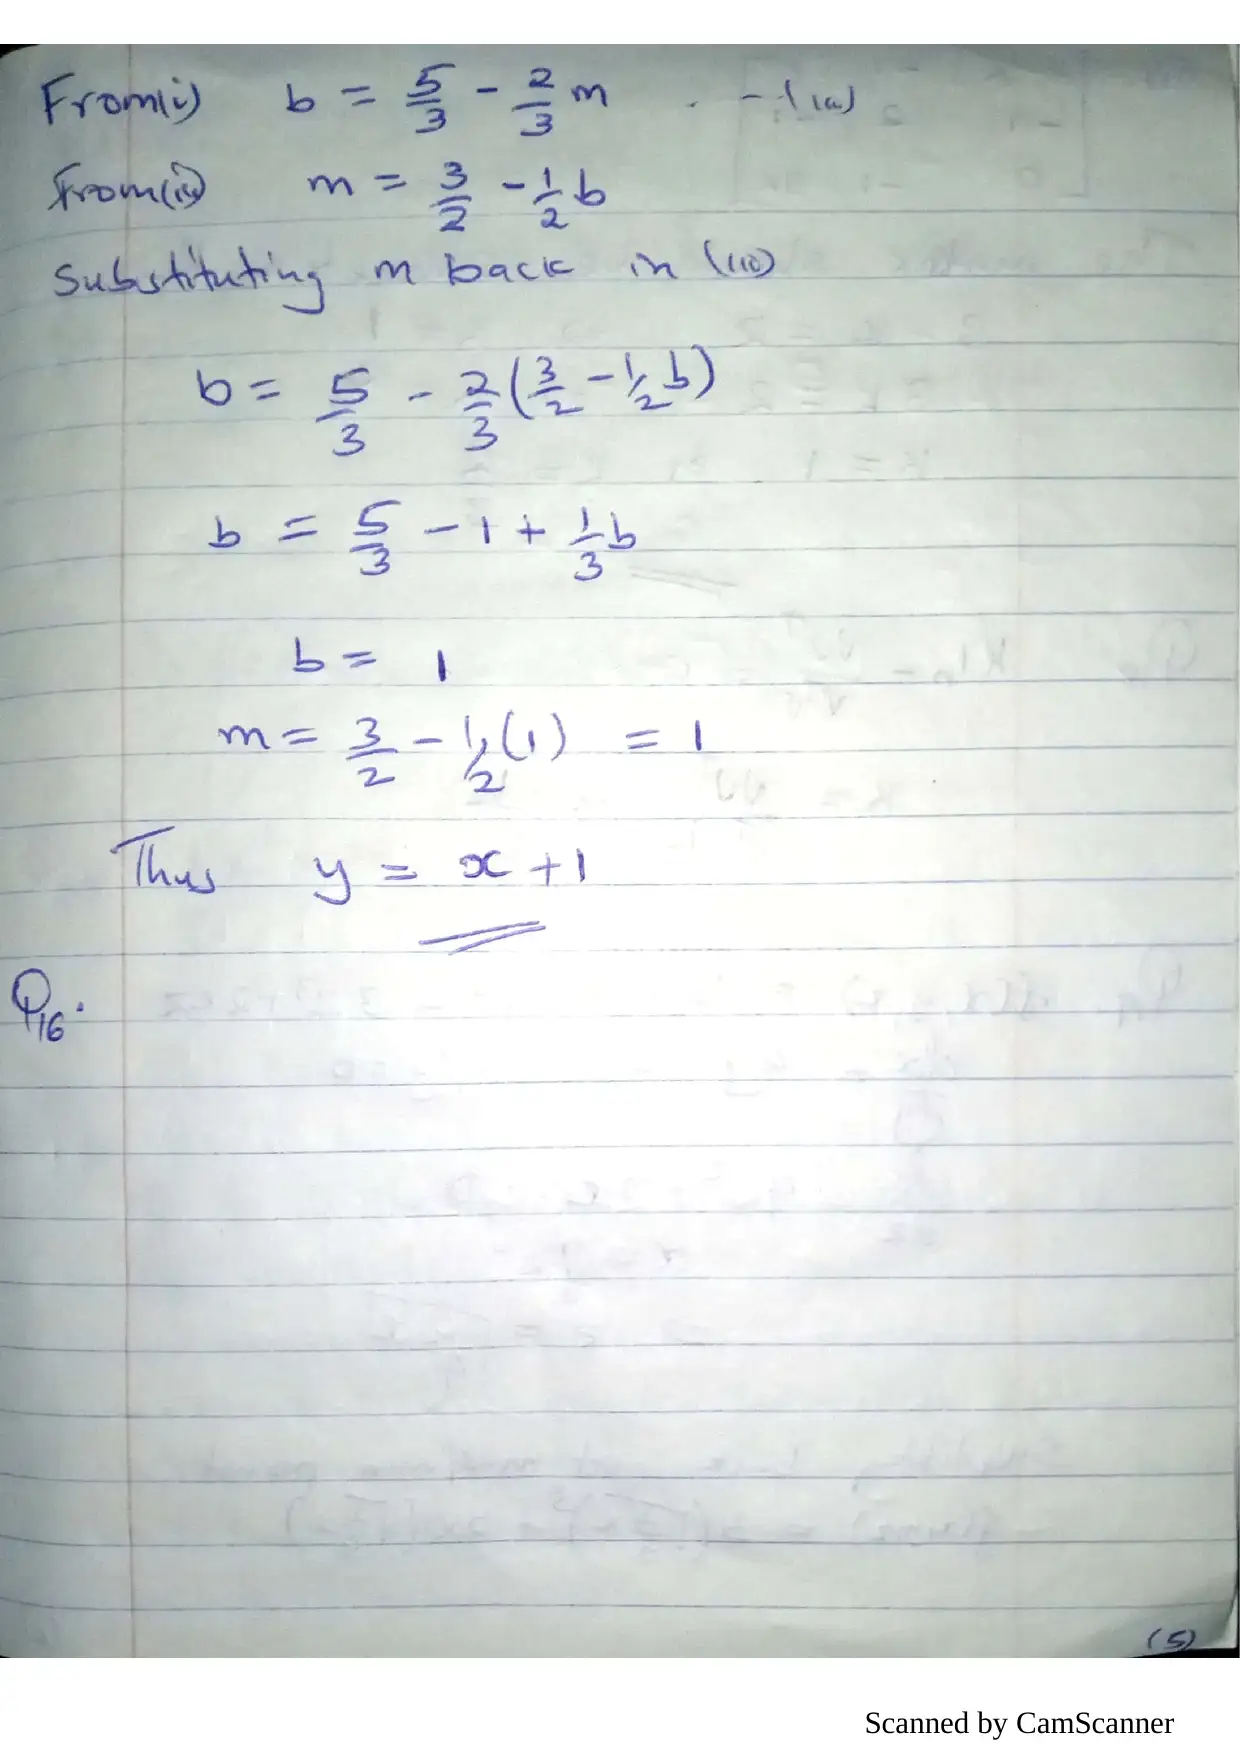 From(i) b = 5/3 - 2/3 m - (iii)
From(ii) m = 3/2 - 1/2 b
Substituting m back in (iii)
b = 5/3 - 2/3 (3/2 - 1/2 b)
b = 5/3 - 1 + 1/3 b
b = 1
m = 3/2 - 1/2 (1) = 1
Thus y = x + 1
Q16.
(5)
Scanned by CamScanner